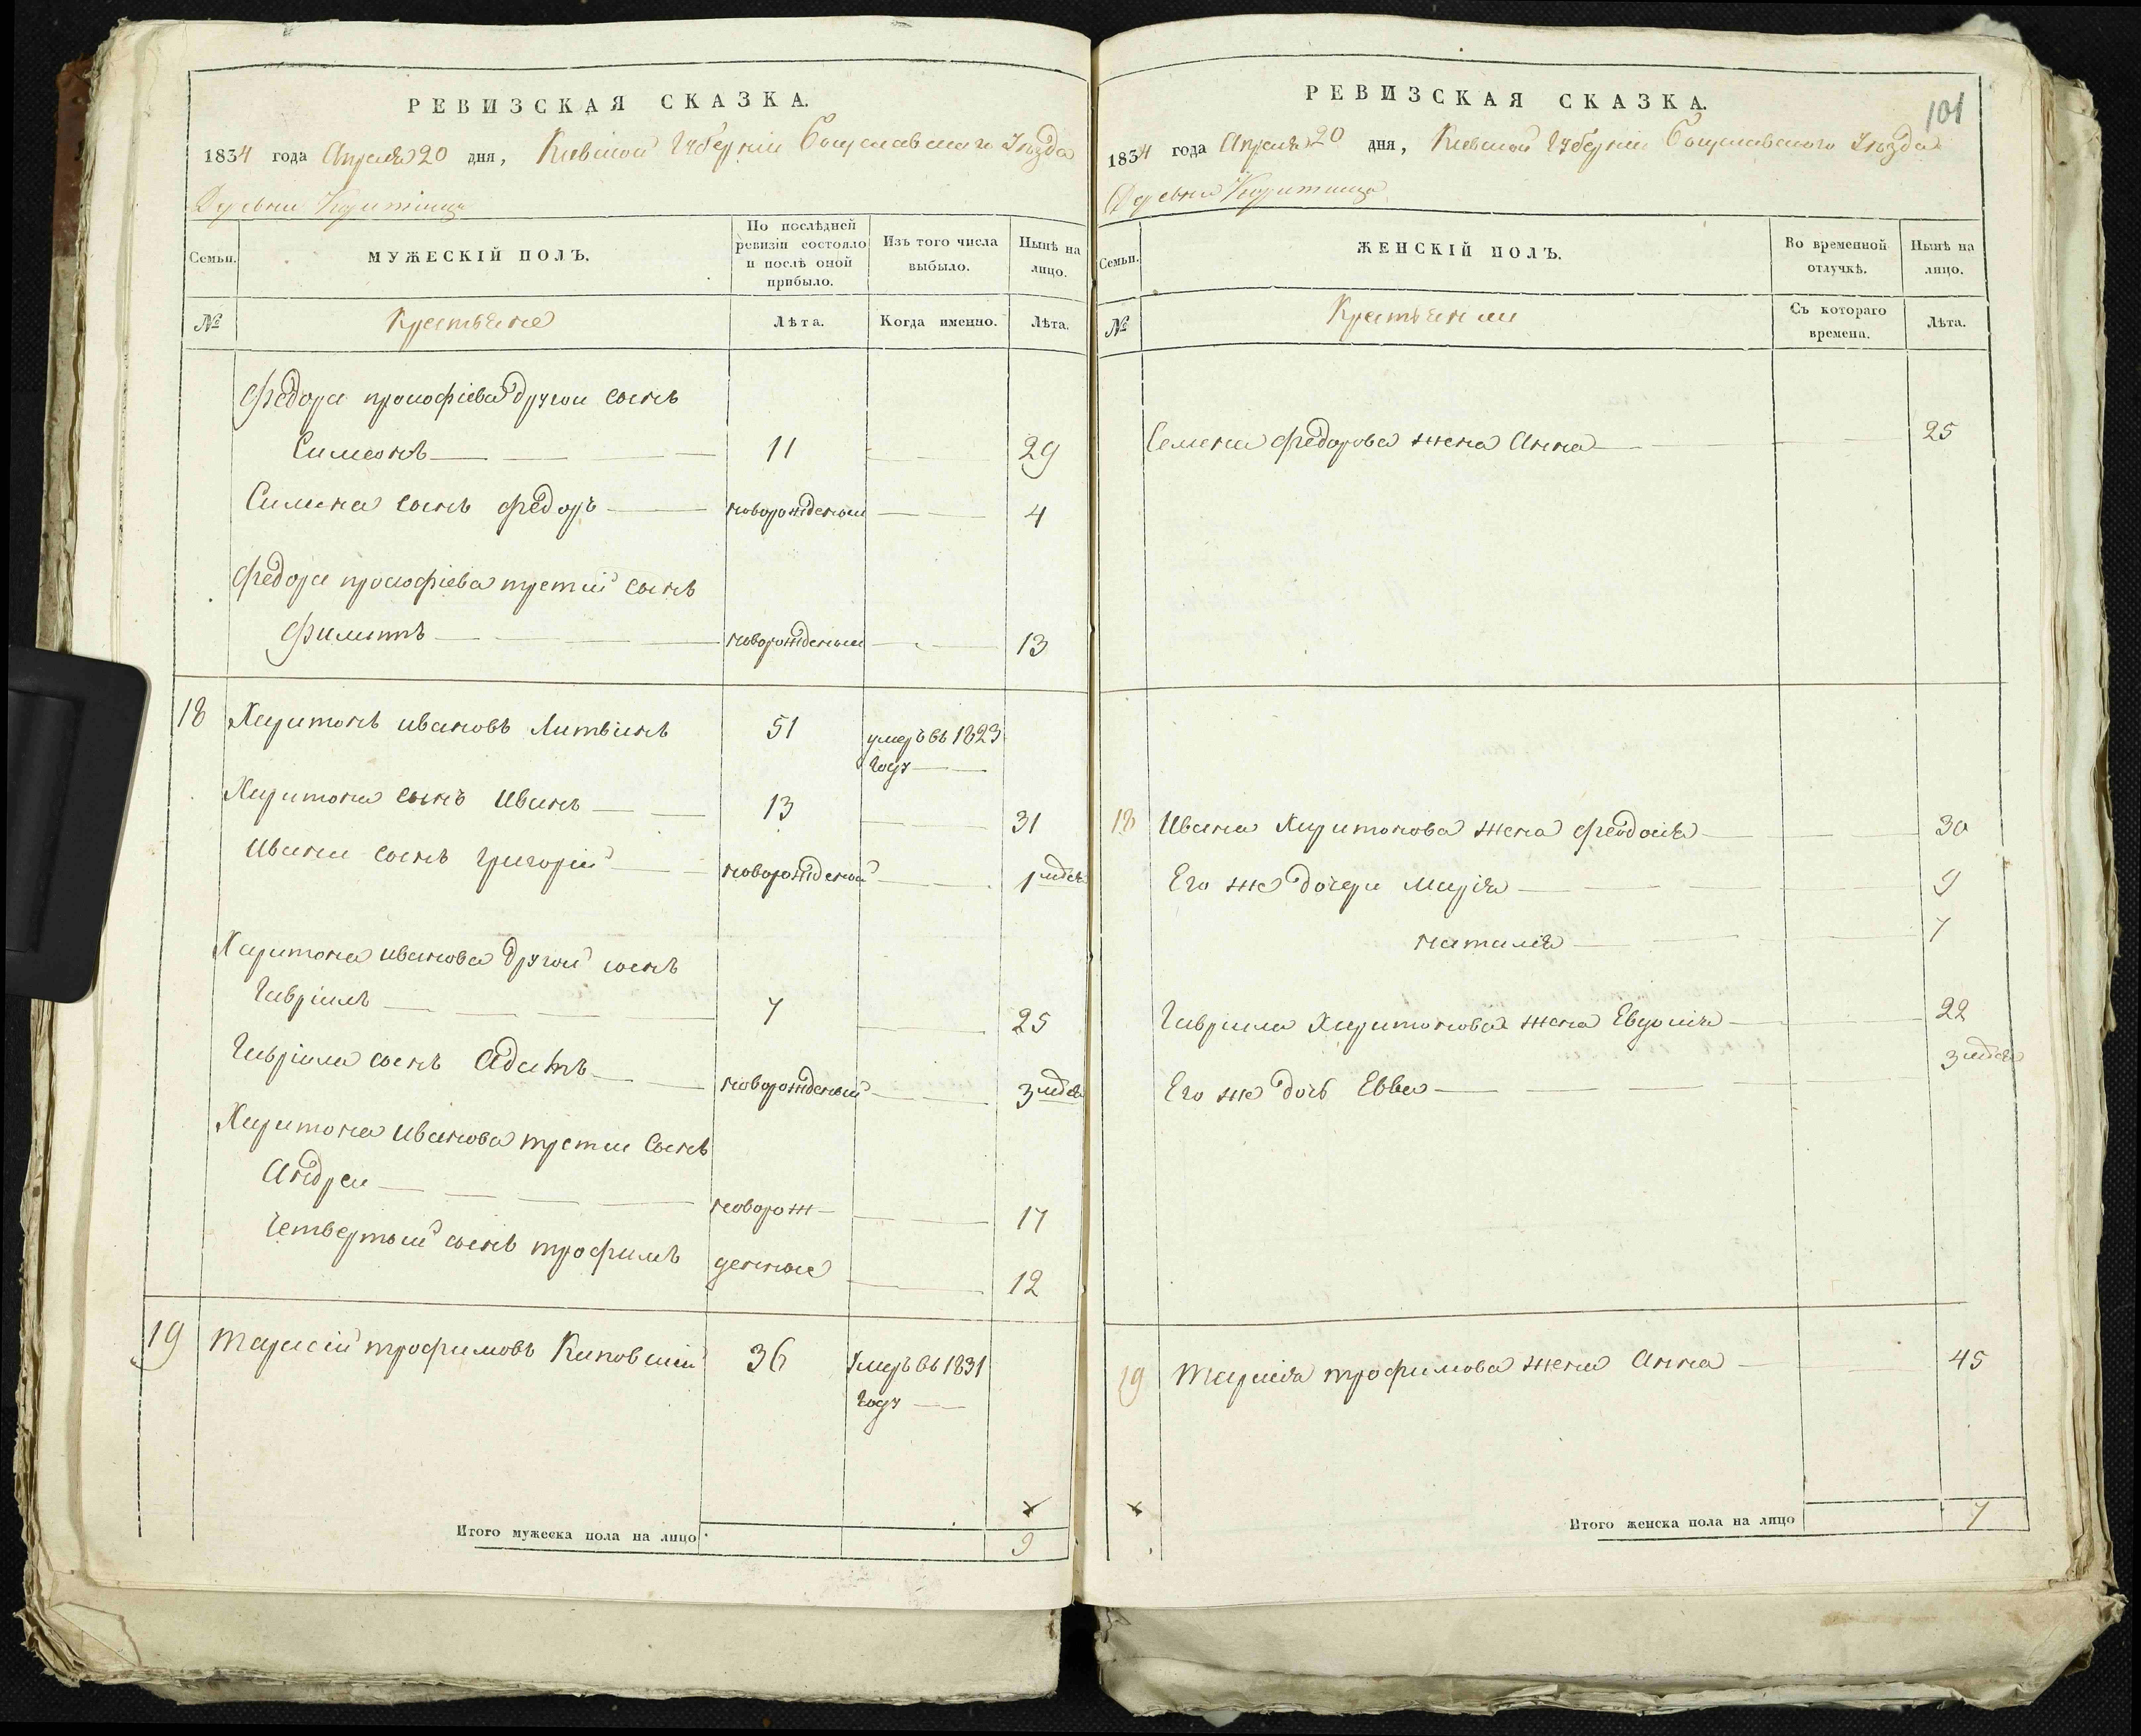 РЕВИЗСКАЯ СКАЗКА.
1834 года Апреля 20 дня, Киевской Губерніи Богуславского Уѣзда
Деревни
Семьи.
МУЖЕСКІЙ ПОЛЪ.
По послѣдней
ревизіи состояло
и послѣ оной
прибыло.
Изъ того числа
выбыло.
Нынѣ на
лицо.
№
Крестьяне
Лѣта.
Когда именно.
Лѣта.
Федора прокофіева другои сынъ
Симеонъ 11 29
Симена сынъ федоръ новорожденыи 4
Федора прокофіева третій сынъ
Филиппъ новорожденыи 13
18 Харитонъ ивановъ Литвинъ 51 умеръ въ 1823
году
Харитона сынъ Иванъ 13 31
Ивана сынъ григорій новорожденой 1 мдсѣ
Харитона иванова другой сынъ
Гавріилъ 7 25
Гавріила сынъ Адамъ новорожденый 3 мдсѣ
Харитона Иванова третіи Сынъ
Андреи новорож- 17
Четвертый сынъ трофимъ денные 12
19 Тарасій трофимовъ 36 Умеръ въ 1831
году
Итого мужеска пола на лицо 9
РЕВИЗСКАЯ СКАЗКА.
101
1834 года Апреля 20 дня, Киевской Губерніи Богуславского Уѣзда
Деревни
Семьи.
ЖЕНСКІЙ ПОЛЪ.
Во временной
отлучкѣ.
Нынѣ на
лицо.
№
Крестьянки
Съ котораго
времена.
Лѣта.
Семена федорова жена Анна 25
18 Ивана Харитонова жена феодосія 30
Его же дочери Марія 9
наталія 7
Гавриила Харитонова жена Евдокія 22
Его же дочь Евва 3 мдсѣ
19 Тарасія трофимова жена Анна 45
Итого женска пола на лицо 7